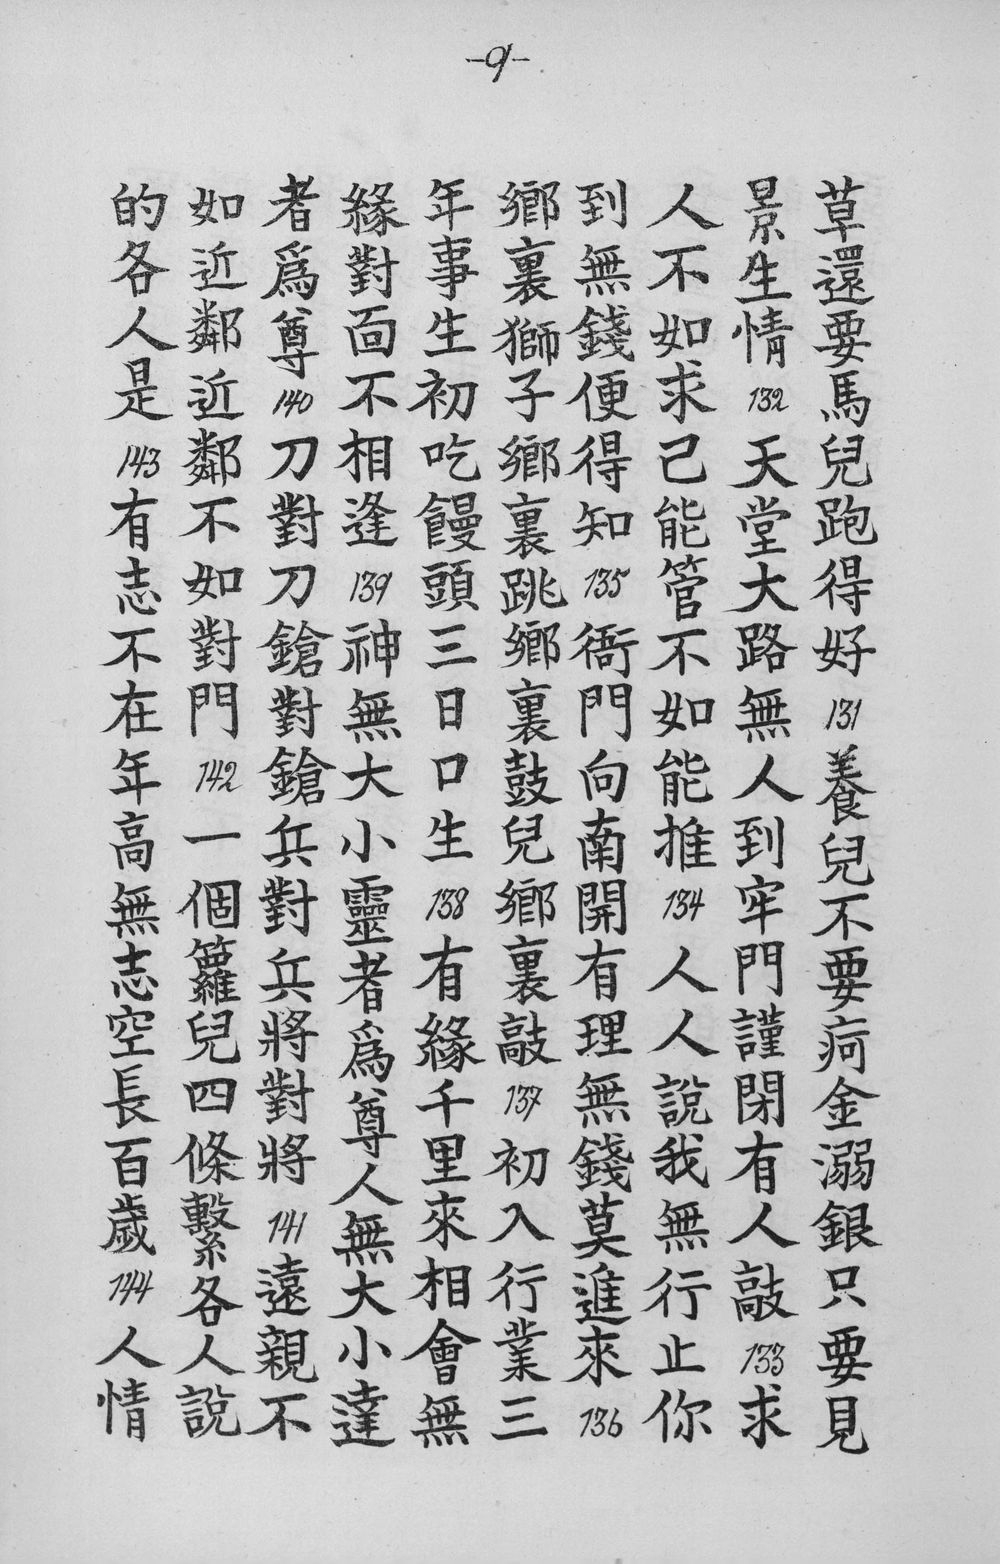 -9-
草還要馬兒跑得好 131 養兒不要疴金溺銀只要見
景生情 132 天堂大路無人到牢門謹閉有人敲 133 求
人不如求己能管不如能推 134 人人說我無行止你
到無錢便得知 135 衙門向南開有理無錢莫進來 136
鄉裏獅子鄉裏跳鄉裏鼓兒鄉裏敲 137 初入行業三
年事生初吃饅頭三日口生 138 有緣千里來相會無
緣對面不相逢 139 神無大小靈者爲尊人無大小達
者爲尊 140 刀對刀鎗對鎗兵對兵將對將 141 遠親不
如近鄰近鄰不如對門 142 一個籮兒四條繫各人說
的各人是 143 有志不在年高無志空長百歲 144 人情